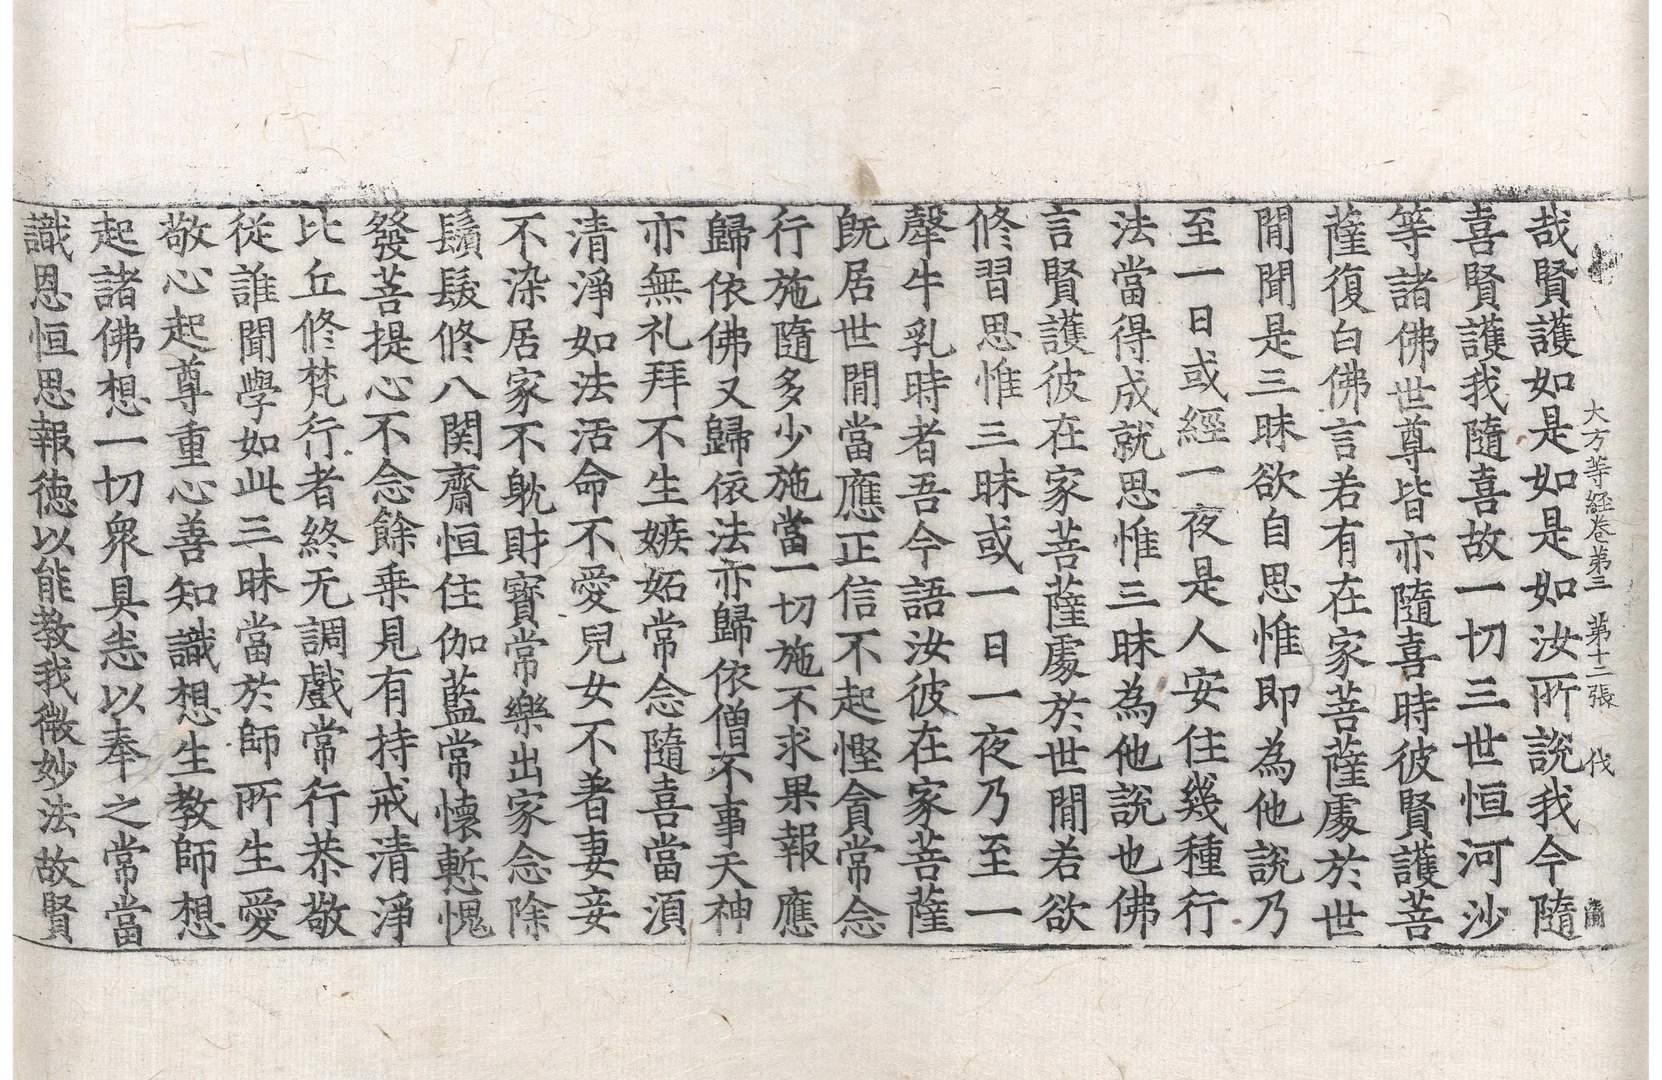 大方等経卷第三 第十二張 伐
哉賢護如是如是如汝所說我今隨
喜賢護我隨喜故一切三世恒河沙
等諸佛世尊皆亦隨喜時彼賢護菩
薩復白佛言若有在家菩薩處於世
間聞是三昧欲自思惟即為他說乃
至一日或經一夜是人安住幾種行
法當得成就思惟三昧為他說也佛
言賢護彼在家菩薩處於世間若欲
修習思惟三昧或一日一夜乃至一
㲉牛乳時者吾今語汝彼在家菩薩
既居世間當應正信不起慳貪常念
行施隨多少施當一切施不求果報應
歸依佛又歸依法亦歸依僧不事天神
亦無礼拜不生嫉妬常念隨喜當湏
清淨如法活命不愛兒女不著妻妾
不染居家不躭財寶常樂出家念除
鬚髮修八関齋恒住伽藍常懷慙愧
發菩提心不念餘乗見有持戒清淨
比丘修梵行者終无調戲常行恭敬
從誰聞學如此三昧當於師所生愛
敬心起尊重心善知識想生教師想
起諸佛想一切衆具悉以奉之常當
識恩恒思報德以能教我微妙法故賢